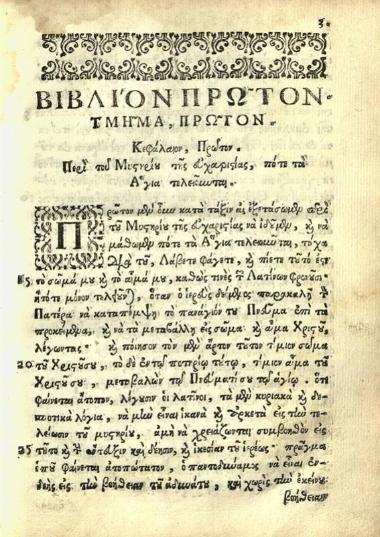 3.
ΒΙΒΛΙΌΝ ΠΡΩ͂ΤΟΝ.
ΤΜΗ͂ΜΑ, ΠΡΩ͂ΤΟΝ.
Κεφάλαιον, Πρῶτον.
Περὶ τοῦ Μυςηρίου τῆς Εὐχαριςίας, πότε τὰ
Ἅγια τελειοῦνται.
Πρῶτον μὲν κατὰ τάξιν ἂς ἐξετάσωμεν περὶ
τοῦ Μυςηρίου τῆς Εὐχαριςίας νὰ ἰδοῦμεν, καὶ νὰ
μάθωμεν πότε τὰ Ἅγια τελειοῦνται, τάχα
τὸ, Λάβετε φάγετε, καὶ πίετε τοῦτό ἐςι
15 τὸ σῶμά μου καὶ τὸ αἷμά μου, καθὼς τινὲς τῶν Λατίνων φρονοῦσι
ὅταν ὁ ἱερεὺς δεόμενος παρακαλῇ τὸν
Πατέρα νὰ καταπέμψῃ τὸ πανάγιον του Πνεῦμα ἐπὶ τὰ
προκείμενα, καὶ νὰ τὰ μεταβάλῃ εἰς σῶμα καὶ αἷμα Χριςοῦ,
λέγωντας· καὶ ποίησον τὸν μὲν ἄρτον τοῦτον τίμιον σῶμα
20 τοῦ Χριςοῦ σου, τὸ δὲ ἐν τῷ ποτηρίῳ τούτῳ, τίμιον αἷμα τοῦ
Χριςοῦ σου, μεταβαλὼν τῷ Πνεύματί σου τῷ ἁγίῳ, ὅτι
φαίνεται ἄτοπον, λέγουσιν οἱ λατῖνοι, τὰ μὲν κυριακὰ καὶ δε-
σποτικὰ λόγια, νὰ μὴν εἶναι ἱκανὰ καὶ ἀρκετὰ εἰς τὴν τε-
λείωσιν τοῦ μυςηρίου, ἀμὴ νὰ χρειάζωνται συμβοηθὸν εἰς
25 τοῦτο καὶ τὴν εὔταξιν καὶ δέησιν, καὶ ἱκεσίαν τοῦ ἱερέως· πρᾶγμα
ὁποῦ φαίνεται ἀτοπώτατον, ὁ παντοδύναμος νὰ εἶναι ἐν-
δεὴς εἰς τὴν βοήθειαν τοῦ ἀδυνάτου, καὶ χωρὶς τὴν ἐκείνου
βοήθειαν